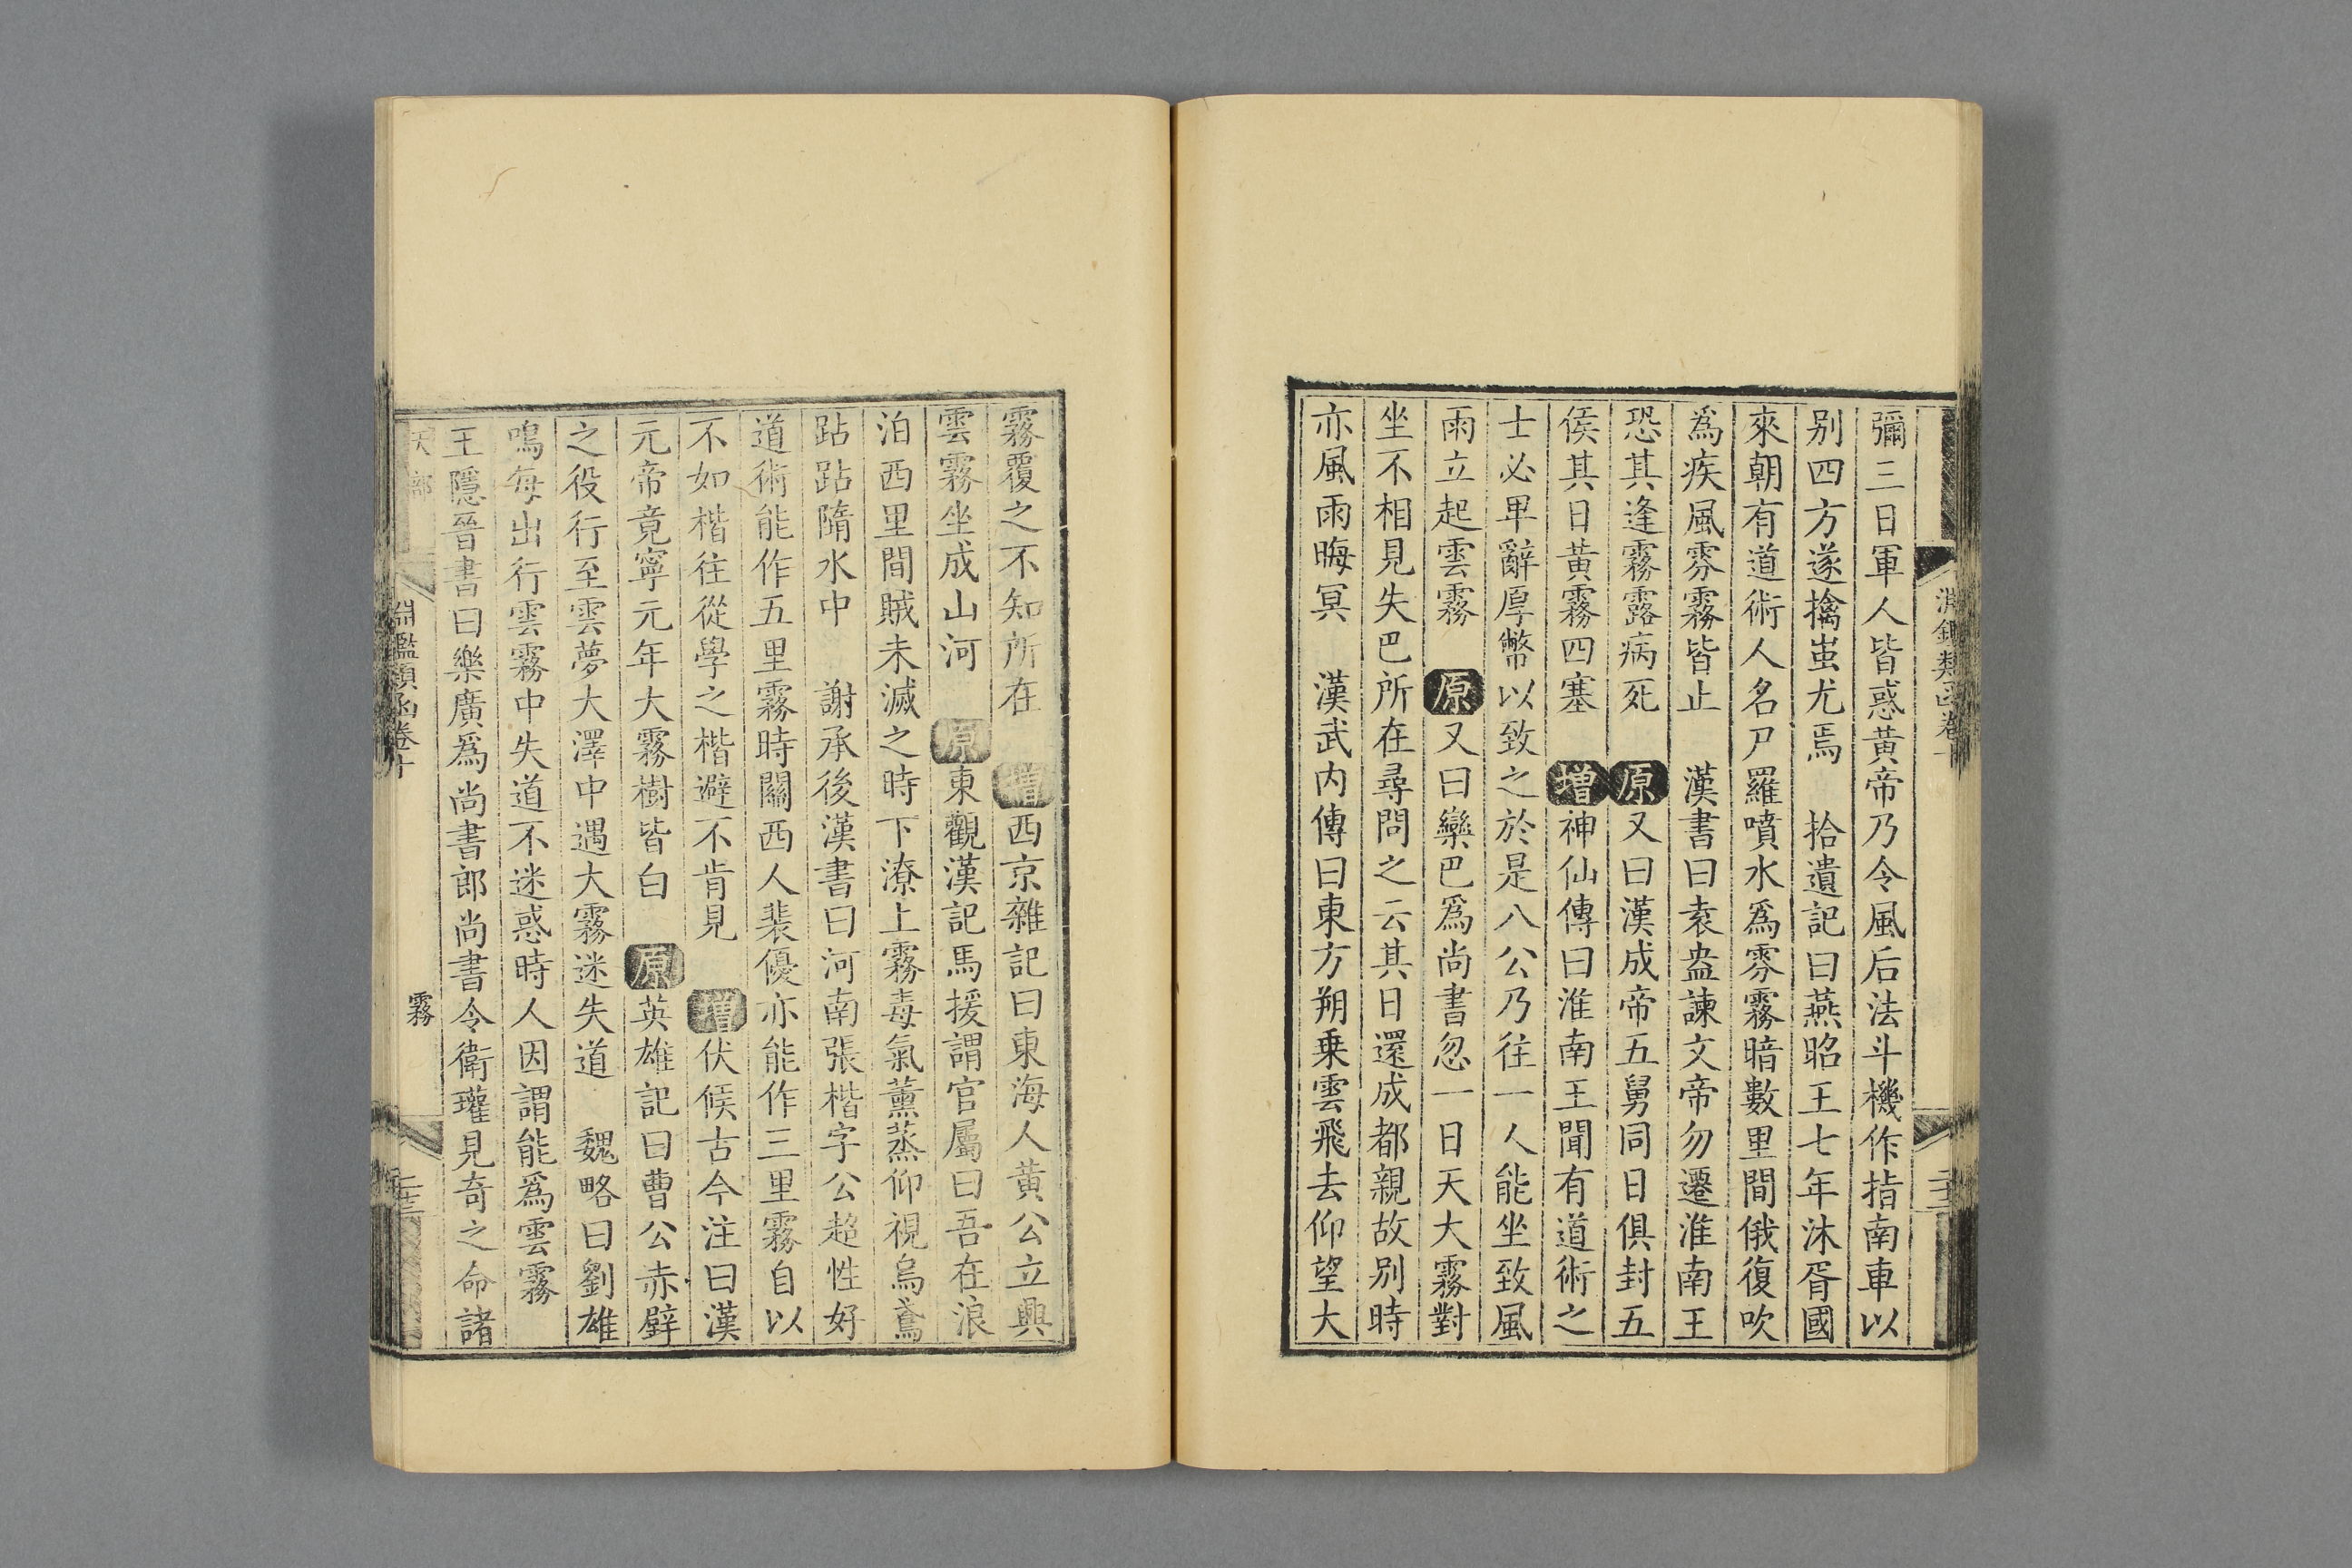 彌三日軍人皆惑黃帝乃令風后法斗機作指南車以
别四方遂擒蚩尤焉　拾遺記曰燕昭王七年沐胥國
來朝有道術人名尸羅噴水爲雰霧暗數里間俄復吹
爲疾風雰霧皆止　漢書曰袁盎諫文帝勿遷淮南王
恐其逢霧露病死　原又曰漢成帝五舅同日俱封五
侯其日黃霧四塞　增神仙傳曰淮南王聞有道術之
士必卑辭厚幣以致之於是八公乃往一人能坐致風
雨立起雲霧　原又曰欒巴爲尚書忽一日天大霧對
坐不相見失巴所在尋問之云其日還成都親故别時
亦風雨晦冥　漢武内傳曰東方朔乗雲飛去仰望大
霧覆之不知所在　增西京雜記曰東海人黃公立興
雲霧坐成山河　原東觀漢記馬援謂官屬曰吾在浪
泊西里間賊未滅之時下潦上霧毒氣薰蒸仰視烏鳶
跕跕隋水中　謝承後漢書曰河南張楷字公超性好
道術能作五里霧時關西人裴優亦能作三里霧自以
不如楷往從學之楷避不肯見　增伏候古今注曰漢
元帝竟寧元年大霧樹皆白　原英雄記曰曹公赤壁
之役行至雲夢大澤中遇大霧迷失道　魏略曰劉雄
鳴每出行雲霧中失道不迷惑時人因謂能爲雲霧
王隱晉書曰樂廣爲尚書郎尚書令衛瓘見奇之命諸
天部
淵鑑類函卷十
霧